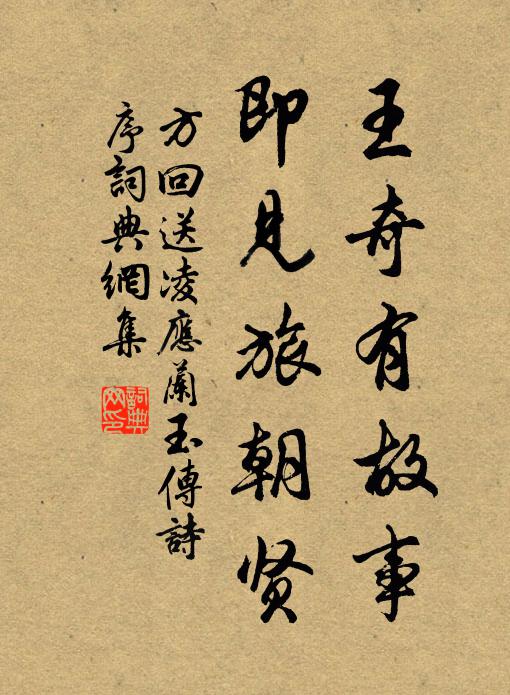 王奇有故事
即見旅朝贤
方回送凌應蘭玉傳詩
序詞典網集
詞典網印